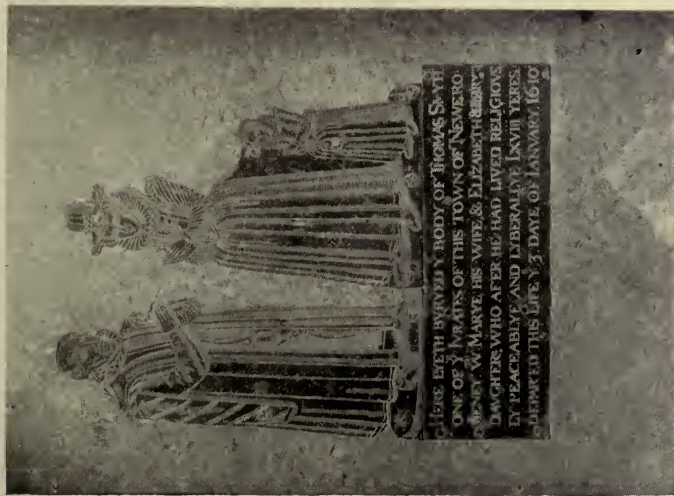 HERE LYETH BVRYED Y BODY OF THOMAS
ONE OF Y IVRATES OF THIS TOWN OF NEWE RO
W MARYE HIS WIFE, & ELIZABETH
DAVGHTER, WHO AFTER HE HAD LIVED RELIGIOVS
LY PEACEABLYE AND LYBERALLYE LXVIII YERES
DEPARTED THIS LIFE Y 3 OF IANVARY, 1610